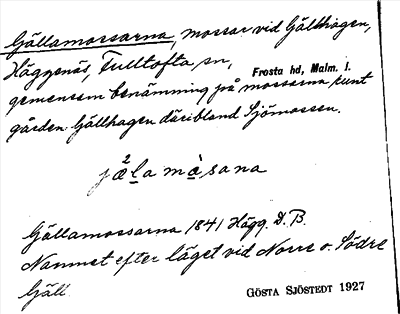 Gällamossarna, mossar vid Gällhagen,
Häggenäs, Fulltofta sn, Frosta hd, Malm. l.
gemensam benämning på mossarna runt
gården Gällhagen däribland Sjömossen.
j²æl̲a mà̲sana
Gällamossarna 1841 Hägg. D. B.
Namnet efter läget vid Norre o. Södre
Gäll.
GÖSTA SJÖSTEDT 1927